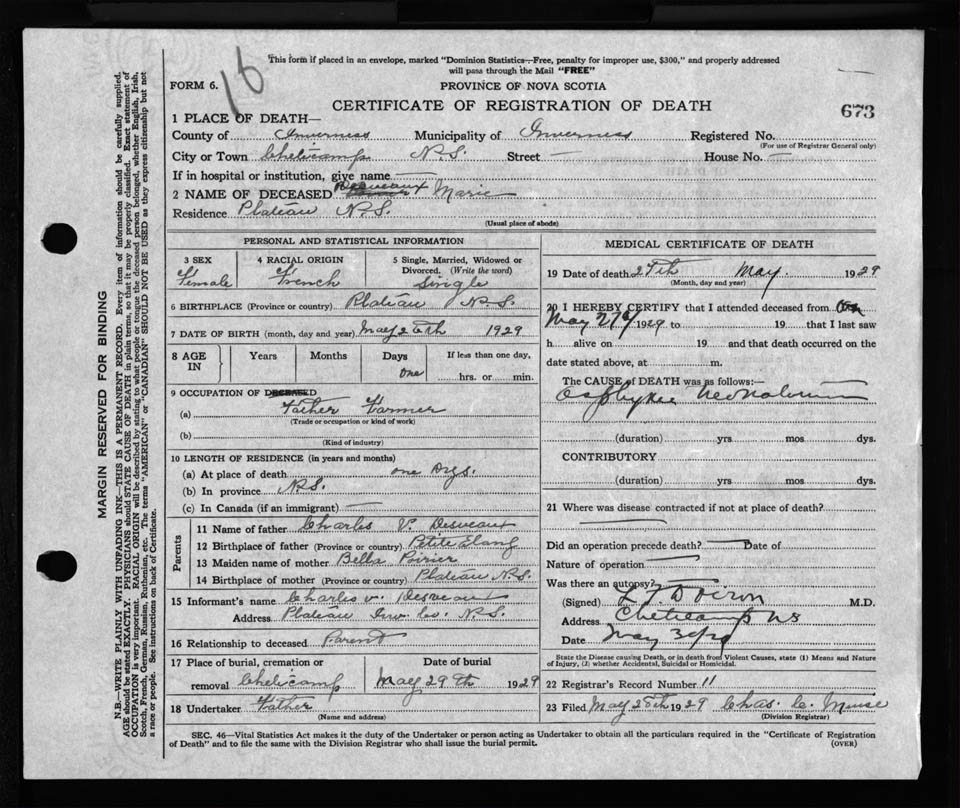 This form if placed in an envelope, marked "Dominion Statistics—Free, penalty for improper use, $300," and properly addressed
will pass through the Mail "FREE"
16
FORM 6.
PROVINCE OF NOVA SCOTIA
CERTIFICATE OF REGISTRATION OF DEATH
673
1 PLACE OF DEATH—
County of Inverness Municipality of Inverness Registered No.
(For use of Registrar General only)
City or Town Cheticamp N.S. Street — House No. —
If in hospital or institution, give name —
2 NAME OF DECEASED Desveaux Marie
Residence Plateau N.S.
(Usual place of abode)
PERSONAL AND STATISTICAL INFORMATION
3 SEX 4 RACIAL ORIGIN 5 Single, Married, Widowed or
Divorced. (Write the word)
Female French Single
6 BIRTHPLACE (Province or country) Plateau N.S.
7 DATE OF BIRTH (month, day and year) May 26th 1929
8 AGE IN Years Months Days If less than one day,
one hrs. or min.
9 OCCUPATION OF DECEASED
(a) Father Farmer
(Trade or occupation or kind of work)
(b)
(Kind of industry)
10 LENGTH OF RESIDENCE (in years and months)
(a) At place of death one Dys.
(b) In province N.S.
(c) In Canada (if an immigrant) —
Parents
11 Name of father Charles V. Desveaux
12 Birthplace of father (Province or country) Petite Etang
13 Maiden name of mother Bella Poirier
14 Birthplace of mother (Province or country) Plateau N.S.
15 Informant's name Charles V. Desveaux
Address Plateau Inv. Co. N.S.
16 Relationship to deceased Parent
17 Place of burial, cremation or Date of burial
removal Cheticamp May 29th 1929
18 Undertaker Father
(Name and address)
MEDICAL CERTIFICATE OF DEATH
19 Date of death 27th May 1929
(Month, day and year)
20 I HEREBY CERTIFY that I attended deceased from
May 27 1929 to 19 that I last saw
h alive on 19 and that death occurred on the
date stated above, at m.
The CAUSE of DEATH was as follows:—
Asphyxia Neonatorum
(duration) yrs mos dys.
CONTRIBUTORY
(duration) yrs mos dys.
21 Where was disease contracted if not at place of death?
Did an operation precede death? — Date of
Nature of operation —
Was there an autopsy?
(Signed) M.D.
Address Cheticamp NS
Date May
State the Disease causing Death, or in death from Violent Causes, state (1) Means and Nature
of Injury, (2) whether Accidental, Suicidal or Homicidal.
22 Registrar's Record Number 11
23 Filed May 28th 1929 Chas. C.
(Division Registrar)
SEC. 46—Vital Statistics Act makes it the duty of the Undertaker or person acting as Undertaker to obtain all the particulars required in the "Certificate of Registration
of Death" and to file the same with the Division Registrar who shall issue the burial permit.
(OVER)
MARGIN RESERVED FOR BINDING
N.B.—WRITE PLAINLY WITH UNFADING INK—THIS IS A PERMANENT RECORD. Every item of information should be carefully supplied.
AGE should be stated EXACTLY. PHYSICIANS should STATE CAUSE OF DEATH in plain terms, so that it may be properly classified. Exact statement of
OCCUPATION is very important. RACIAL ORIGIN will be described by stating to what people or tongue the deceased person belonged, whether English, Irish,
Scotch, French, German, Russian, Ruthenian, etc. The terms "AMERICAN" or "CANADIAN" SHOULD NOT BE USED as they express citizenship but not
a race or people. See instructions on back of Certificate.